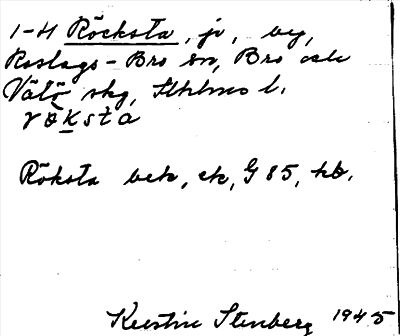 1-4 Röcksta, jr, by,
Roslags-Bro sn, Bro och
Vätö skg, Sthlms l.
rö̀ksta
Röksta bek, ek, G 85, hb.
Kerstin Stenberg 1945